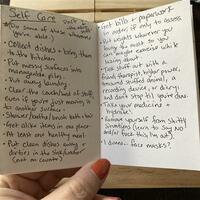 Self Care
Do some of these when
you're able
- Collect dishes + bring them
to the kitchen
- Put messy surfaces into
manageable piles.
- Put away laundry
- Clear the couch/bed of stuff,
even if you're just moving it
to another surface
- Shower/bathe/brush teeth + hair
- Get alike items in one place
- At least one healthy meal
- Put clean dishes away +
dirties in the sink/washer
(not on counter)
- Get bills + paperwork
in order, if only to assess
- Put weights wherever you
lounge the most so you
can maybe exercise while
lazing about
- Talk stuff out with a
friend, therapist, higher power,
pet, stuffed animal, a
recording device, or diary,
and don't stop til you're done.
- Take your medicine +
hydrate
- Remove yourself from shitty
situations (learn to say NO
and/or face this in act).
- I dunno... face masks?